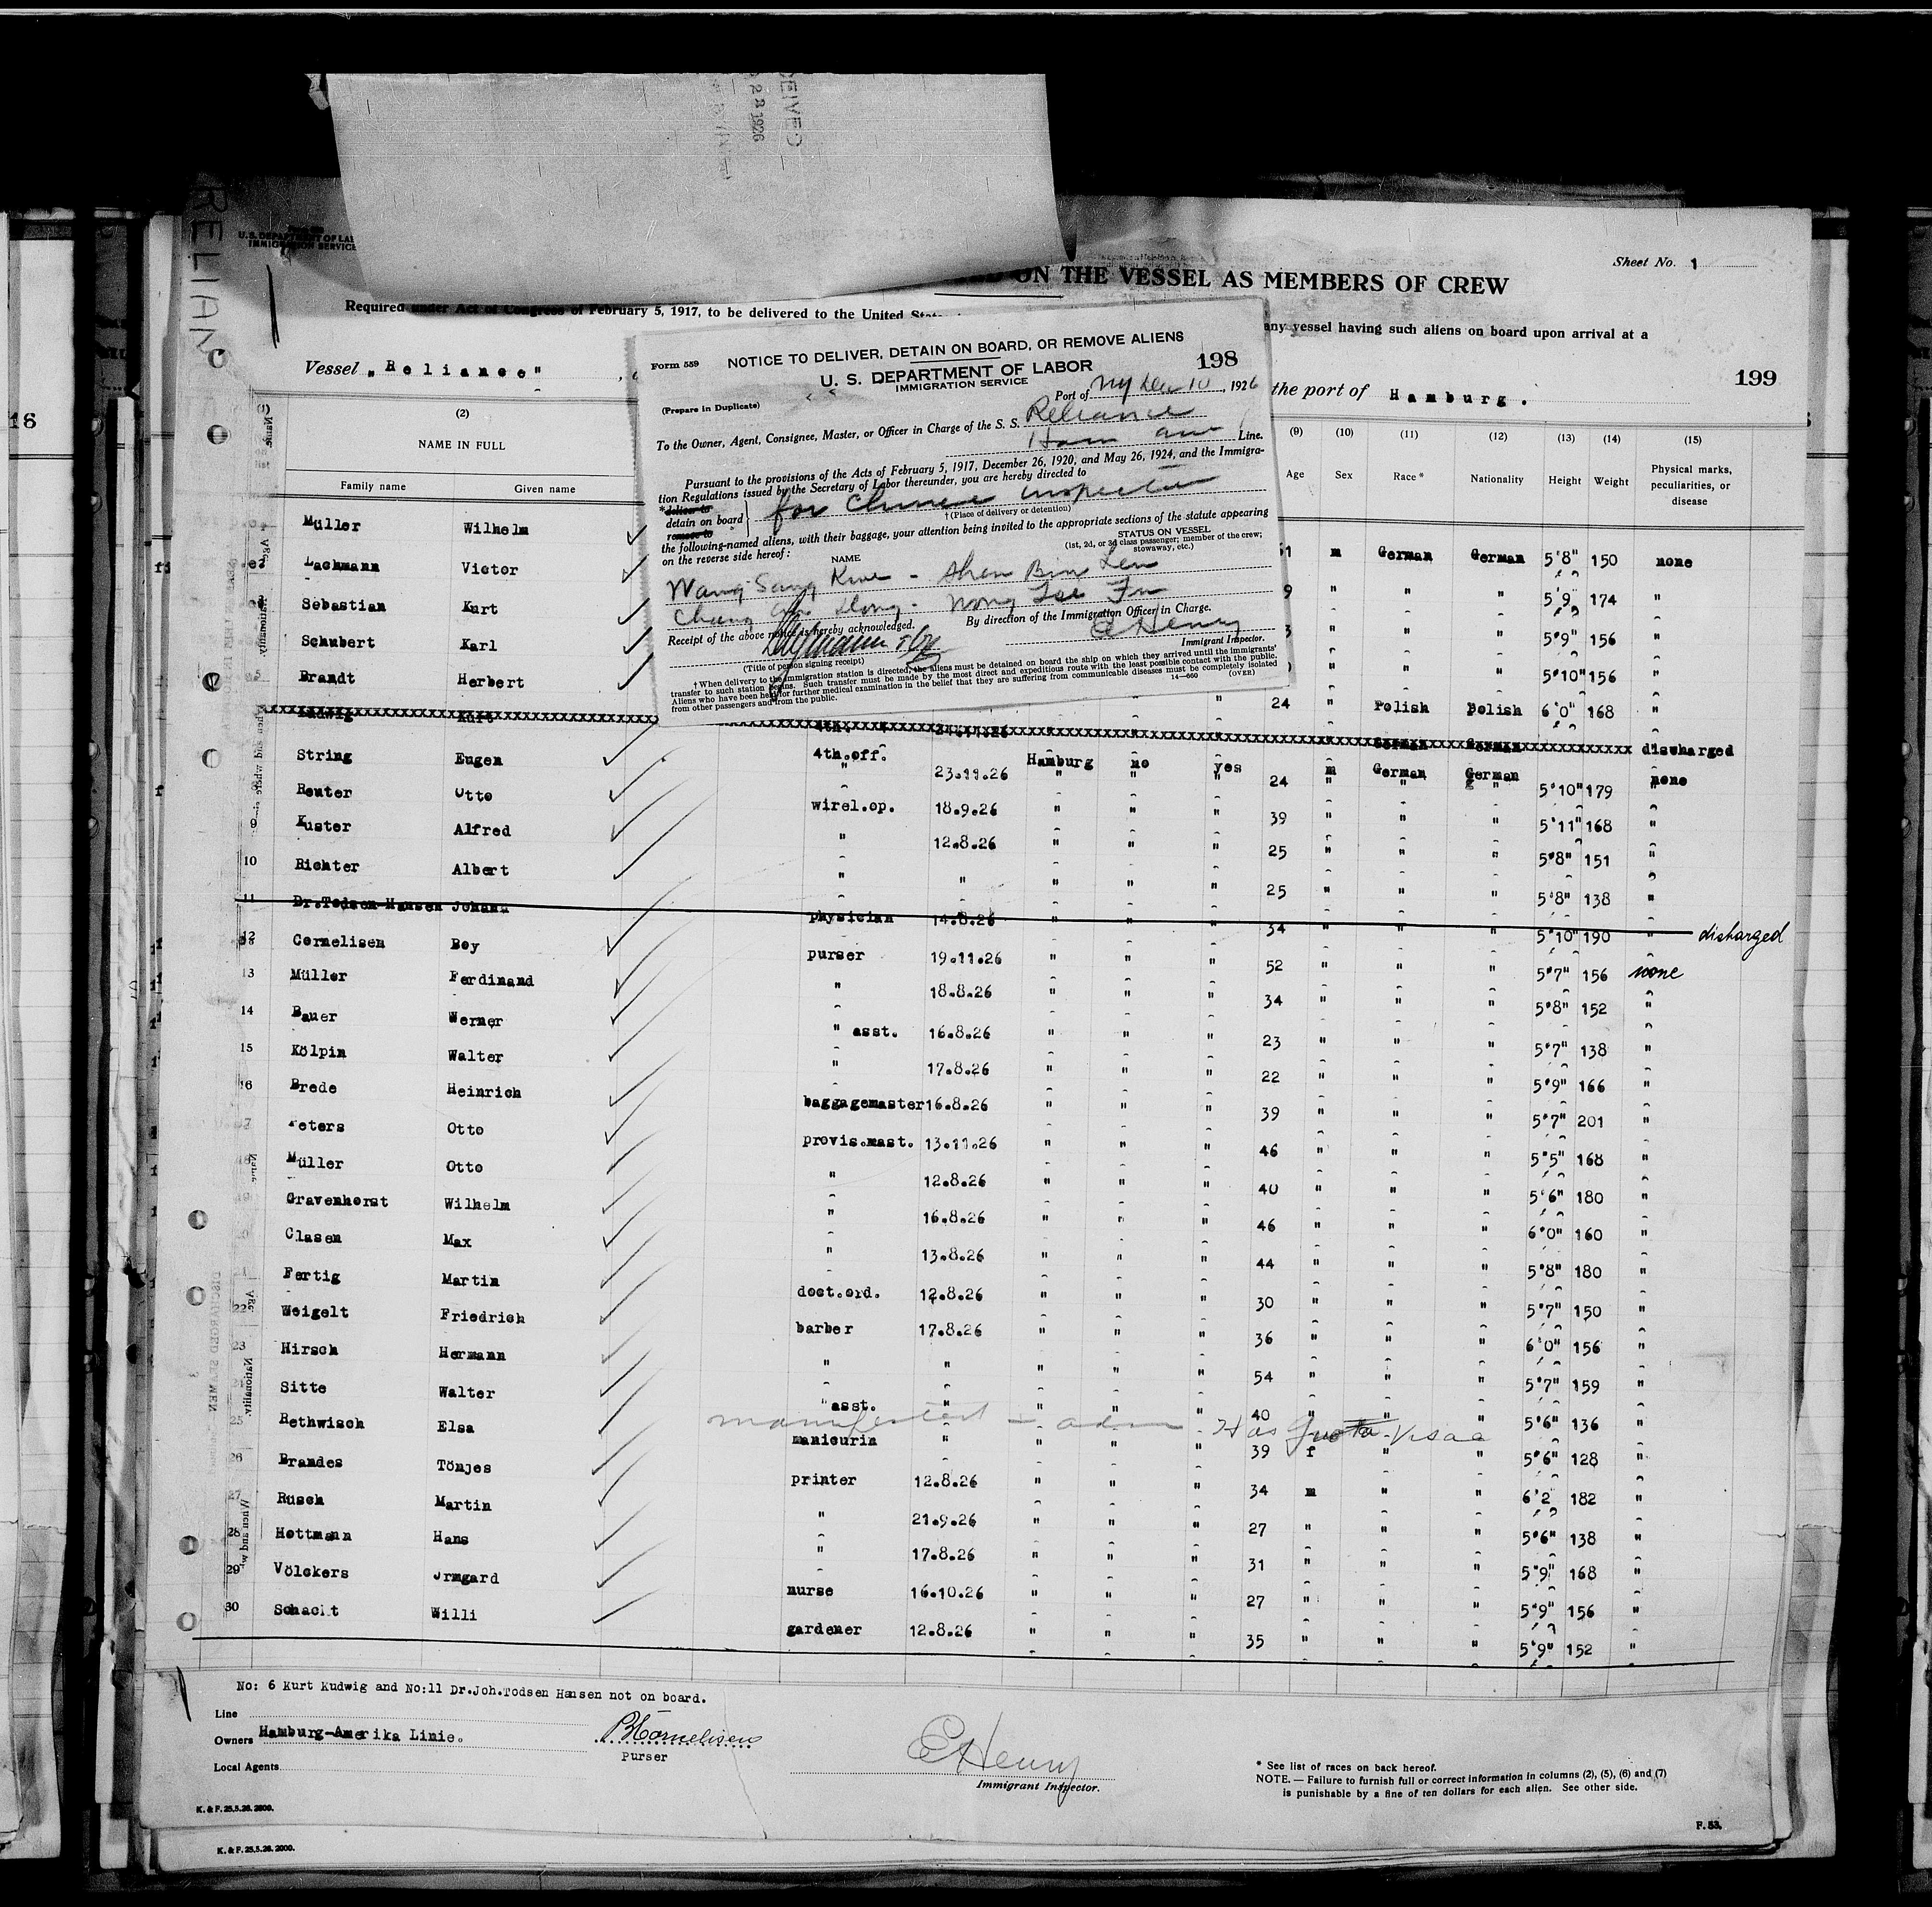 RELIAN
U.S. DEPARTMENT OF LA
IMMIGRATION SERVICE
23 1926
Sheet No. 1
ON THE VESSEL AS MEMBERS OF CREW
Required under Act of Congress of February 5, 1917, to be delivered to the United
any vessel having such aliens on board upon arrival at a
Vessel "Reliance"
the port of Hamburg.
199
Form 559
NOTICE TO DELIVER, DETAIN ON BOARD, OR REMOVE ALIENS
198
U. S. DEPARTMENT OF LABOR
IMMIGRATION SERVICE
(Prepare in Duplicate)
Port of NY Dec 10, 1926
To the Owner, Agent, Consignee, Master, or Officer in Charge of the S. S. Reliance
Ham Am Line.
Pursuant to the provisions of the Acts of February 5, 1917, December 26, 1920, and May 26, 1924, and the Immigra-
tion Regulations issued by the Secretary of Labor thereunder, you are hereby directed to
*deliver to
detain on board
remove to
for Chinese Inspector
†(Place of delivery or detention)
the following-named aliens, with their baggage, your attention being invited to the appropriate sections of the statute appearing
on the reverse side hereof:
NAME
STATUS ON VESSEL
(1st, 2d, or 3d class passenger; member of the crew;
stowaway, etc.)
Wang Sang Kwe - Ahen Bin Len
Chang Dong - Wong Tse Fu
Receipt of the above notice is hereby acknowledged.
By direction of the Immigration Officer in Charge.
E Henry
Immigrant Inspector.
(Title of person signing receipt)
†When delivery to the immigration station is directed, the aliens must be detained on board the ship on which they arrived until the immigrants'
transfer to such station begins. Such transfer must be made by the most direct and expeditious route with the least possible contact with the public.
Aliens who have been held for further medical examination in the belief that they are suffering from communicable diseases must be completely isolated
from other passengers and from the public.
14—660 (OVER)
(2) (9) (10) (11) (12) (13) (14) (15)
NAME IN FULL Age Sex Race* Nationality Height Weight Physical marks, peculiarities, or disease
Family name Given name
Müller Wilhelm 51 m German German 5'8" 150 none
Lachmann Victor 9 " " " 5'9" 174 "
Sebastian Kurt 3 " " " 5'9" 156 "
Schubert Karl " " " 5'10" 156 "
5 Brandt Herbert " 24 " Polish Polish 6'0" 168 "
Ludwig Kurt 4th. " 24.11.26 German German discharged
String Eugen 4th.off. 23.11.26 Hamburg no yes 24 m German German 5'10" 179 none
Reuter Otto wirel.op. 18.9.26 " " " 39 " " " 5'11" 168 "
9 Kuster Alfred " 12.8.26 " " " 25 " " " 5'8" 151 "
10 Richter Albert " " " " " 25 " " " 5'8" 138 "
11 Dr.Todsen-Hansen Johann physician 14.8.26 " " " 34 " " " 5'10" 190 " discharged
12 Cornelisen Boy purser 19.11.26 " " " 52 " " " 5'7" 156 none
13 Müller Ferdinand " 18.8.26 " " " 34 " " " 5'8" 152 "
14 Bauer Werner " asst. 16.8.26 " " " 23 " " " 5'7" 138 "
15 Kölpin Walter " 17.8.26 " " " 22 " " " 5'9" 166 "
16 Brede Heinrich baggagemaster 16.8.26 " " " 39 " " " 5'7" 201 "
17 Peters Otto provis.mast. 13.11.26 " " " 46 " " " 5'5" 168 "
18 Müller Otto " 12.8.26 " " " 40 " " " 5'6" 180 "
19 Gravenhorst Wilhelm " 16.8.26 " " " 46 " " " 6'0" 160 "
Clasen Max " 13.8.26 " " " 44 " " " 5'8" 180 "
21 Fertig Martin doct.ord. 12.8.26 " " " 30 " " " 5'7" 150 "
22 Weigelt Friedrich barber 17.8.26 " " " 36 " " " 6'0" 156 "
23 Hirsch Hermann " " " " " 54 " " " 5'7" 159 "
Sitte Walter "asst. " " " " 40 " " " 5'6" 136 "
manifested - adm Has Quota Visa
25 Rethwisch Elsa manicurin " " " " 39 f " " 5'6" 128 "
26 Brandes Tönjes printer 12.8.26 " " " 34 m " " 6'2 182 "
27 Rusch Martin " 21.9.26 " " " 27 " " " 5'6" 138 "
28 Hottmann Hans " 17.8.26 " " " 31 " " " 5'9" 168 "
29 Völckers Irmgard nurse 16.10.26 " " " 27 " " " 5'9" 156 "
30 Schacht Willi gardener 12.8.26 " " " 35 " " " 5'9" 152 "
No: 6 Kurt Kudwig and No:11 Dr.Joh.Todsen Hansen not on board.
Line
Owners Hamburg-Amerika Linie.
BCornelisen
Purser
Local Agents
EHenry
Immigrant Inspector.
* See list of races on back hereof.
NOTE. — Failure to furnish full or correct information in columns (2), (5), (6) and (7)
is punishable by a fine of ten dollars for each alien. See other side.
K. & F. 25.5.26. 2000.
F. 53.
K. & F. 25.5.26. 2000.